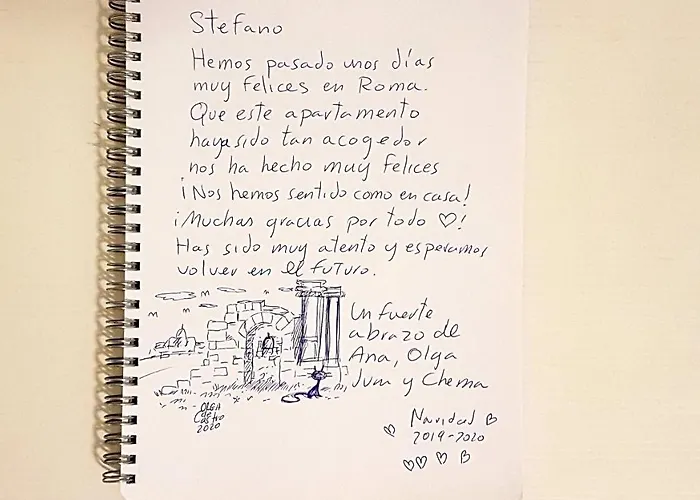 Stefano
Hemos pasado unos días
muy felices en Roma.
Que este apartamento
haya sido tan acogedor
nos ha hecho muy felices
¡Nos hemos sentido como en casa!
¡Muchas gracias por todo ♡!
Has sido muy atento y esperamos
volver en el futuro.
Un fuerte
abrazo de
Ana, Olga
Juan y Chema
OLGA
de
Castro
2020
Navidad
2019-2020